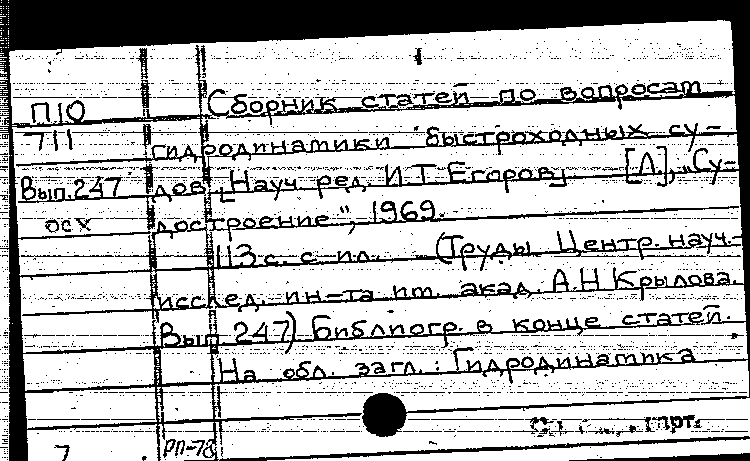 П10 Сборник статей по вопросам
711 гидродинамики быстроходных су-
Вып.247 дов [Науч. ред. И.Т. Егоров] [Л.], „Су-
осх достроение", 1969.
113 с. с ил. (Труды Центр. науч.-
исслед. ин-та им. акад. А.Н Крылова.
Вып 247) Библиогр. в конце статей.
На обл. загл.: Гидродинамика
7 РП-78